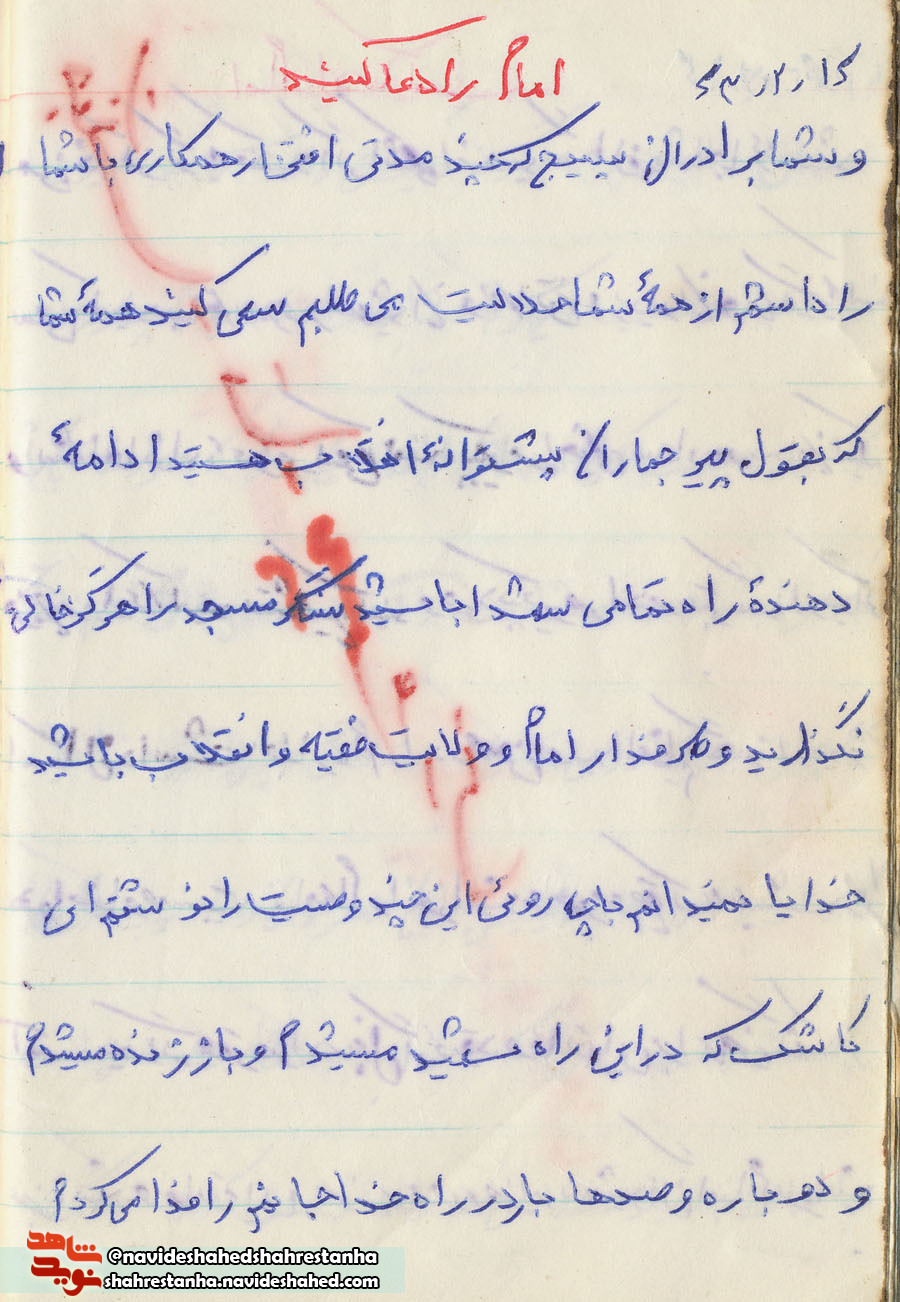 ۶۳٫۲٫۱۶
امام را دعا کنید
و شما برادران بسیج که چند مدتی افتخار همکاری با شما
را داشتم از همهٔ شما حلالیت می طلبم سعی کنید همهٔ شما
که بقول پیر جماران پشتوانهٔ انقلاب هستید ادامهٔ
دهندهٔ راه تمامی شهدا باشید سنگر مسجد را هرگز خالی
نگذارید و طرفدار امام و ولایت فقیه و انقلاب باشید
خدایا نمیدانم باچه روئی این چند وصیت را نوشتم ای
کاشک که در این راه شهید میشدم و باز زنده میشدم
و دوباره و صدها بار در راه خدا جانم را فدا می کردم
شاهد
نوید
@navideshahedshahrestanha
shahrestanha.navideshahed.com